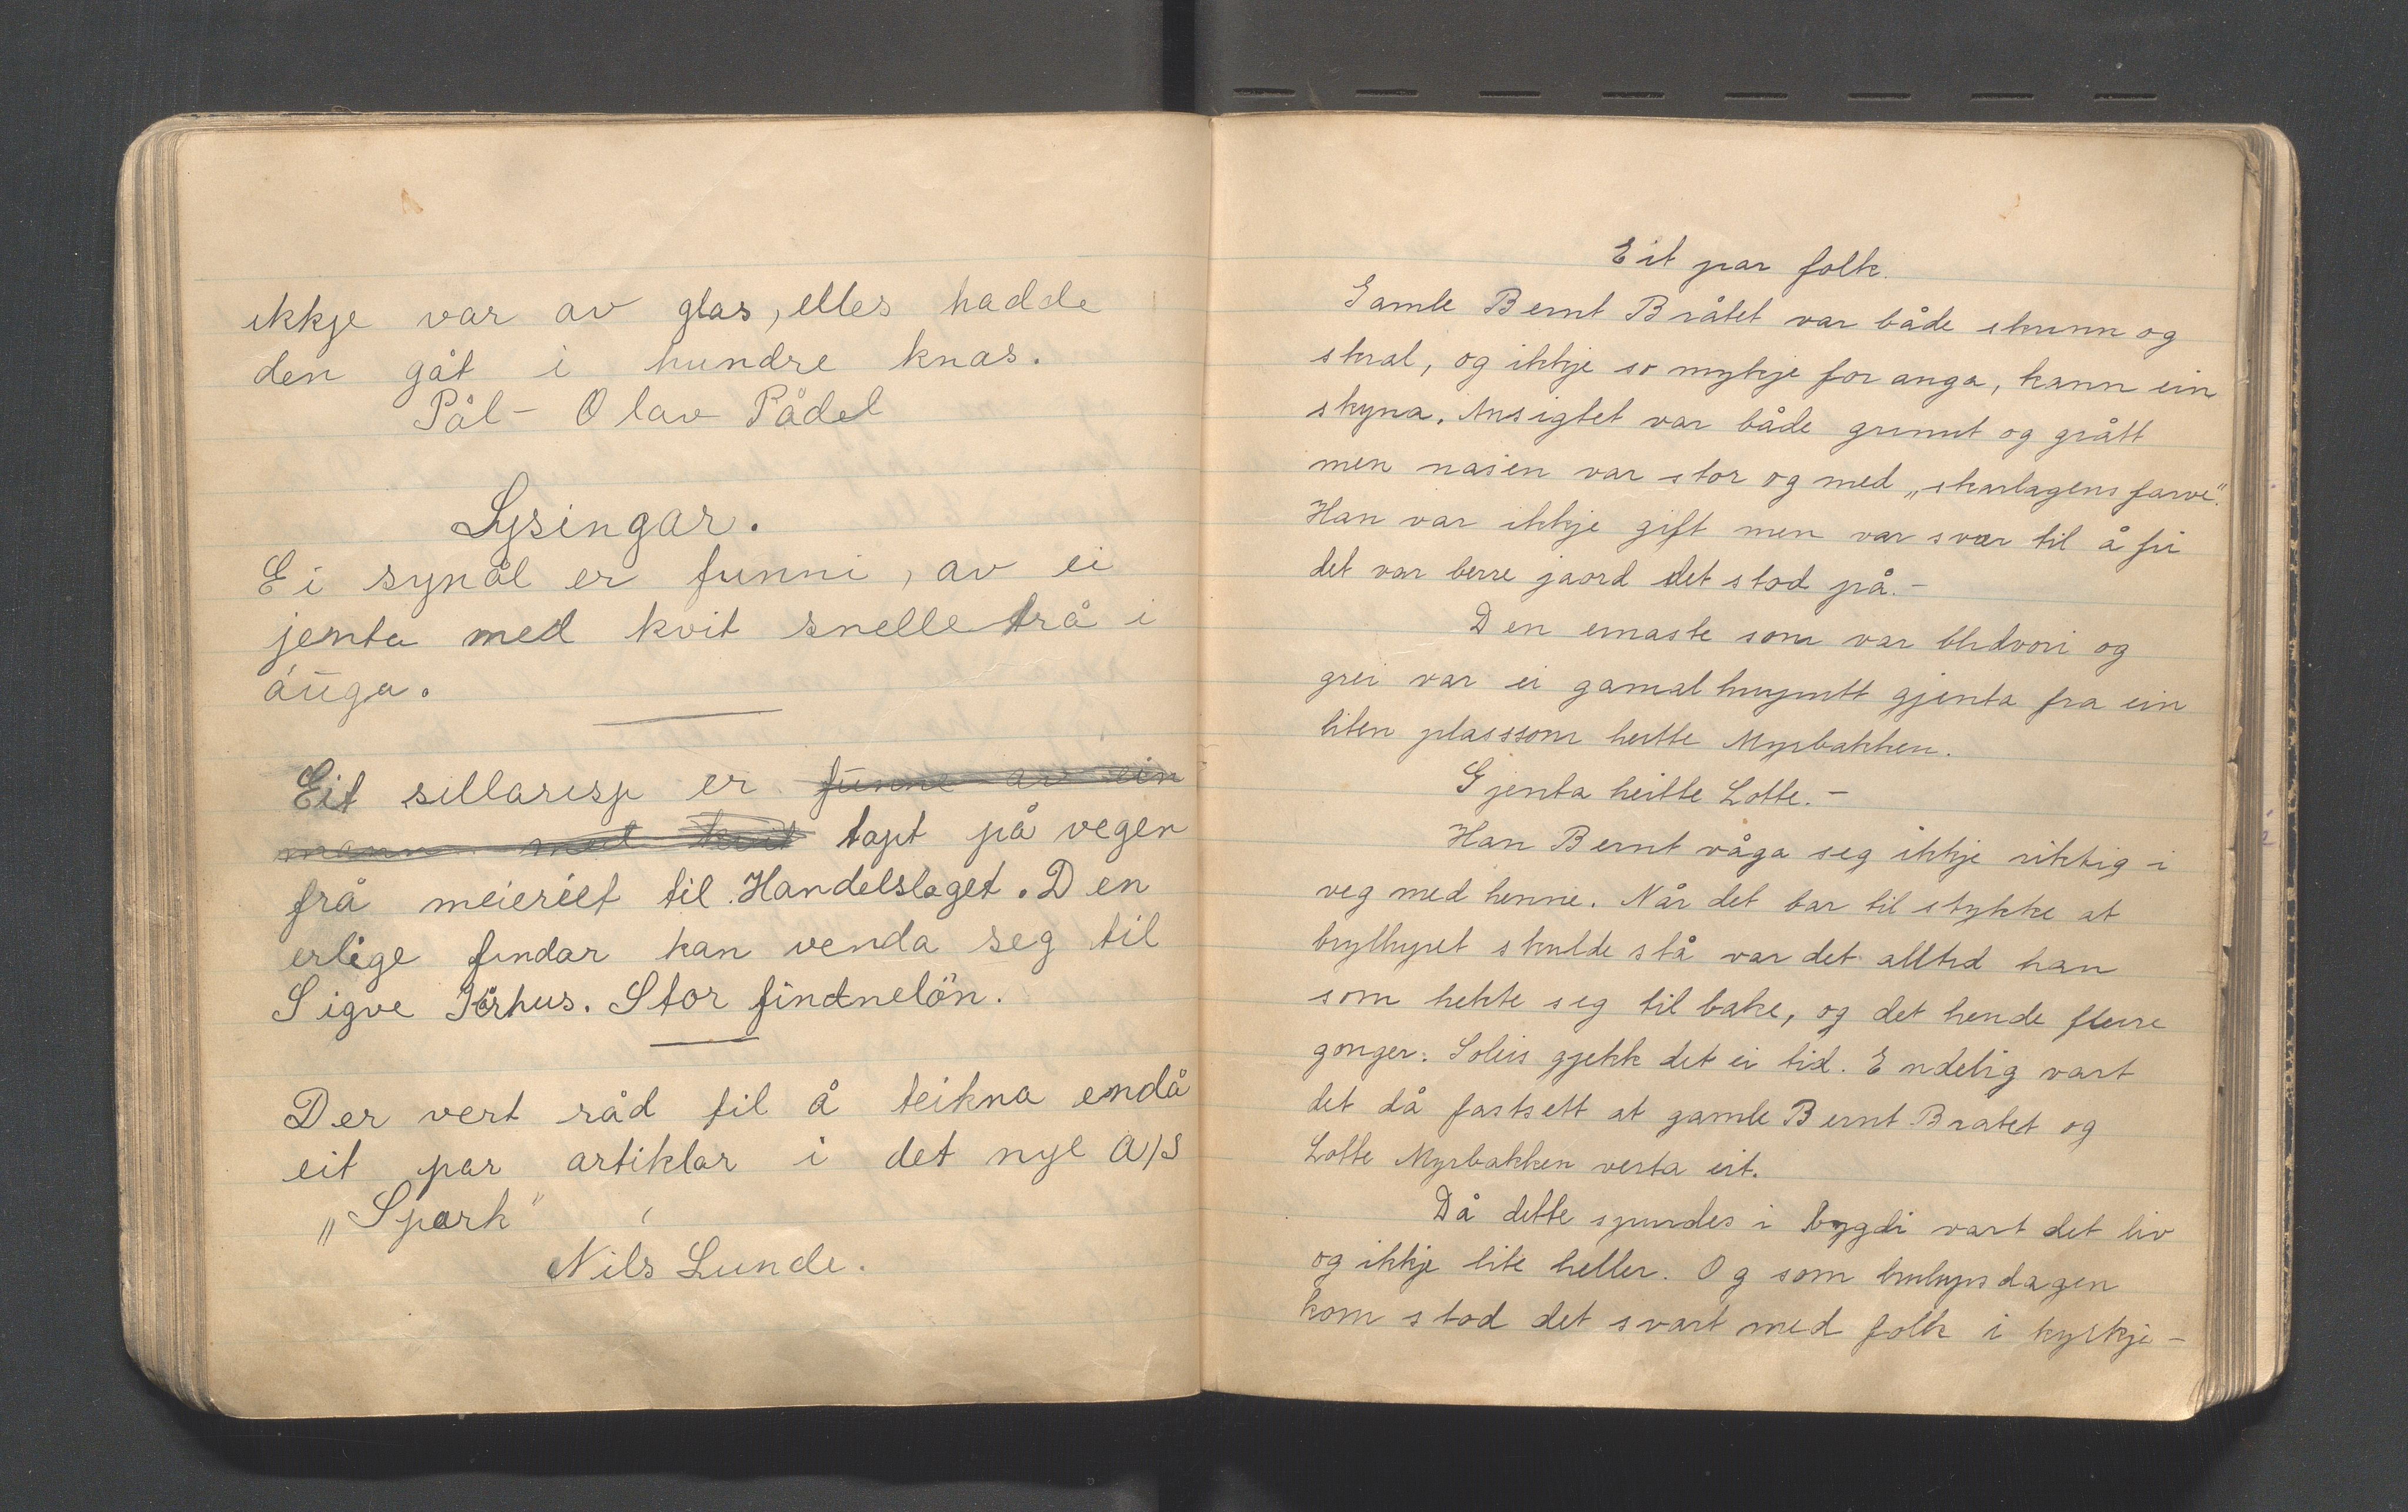 ikkje var av glas, elles hadde
den gåt i hundre knas.
Pål - Olav Pådel
Lysingar.
Ei synål er funni, av ei
jenta med kvit snelletrå i
auga.
Eit sillaresp er funne av ein
mann med kvit tapt på vegen
frå meieriet til Handelslaget. Den
erlige findar kan venda seg til
Sigve Torhus. Stor findnelön.
Der vert råd til å teikna endå
eit par artiklar i det nye A/S
„Spark"
Nils Lunde.
Eit par folk.
Gamle Bernt Bråtet var både skunn og
skral, og ikkje so mykje for auga, kann ein
skyna. Ansigtet var både grunnt og grått
men nasen var stor og med „skarlagens farve".
Han var ikkje gift men var svær til å fri
det var berre jaord det stod på. -
Den einaste som var blidvori og
grei var ei gamal gjenta fra ein
liten plasssom heitte Myrbakken.
Gjenta heitte Lotte. -
Han Bernt våga seg ikkje riktig i
veg med henne. Når det bar til stykke at
bryllupet skulde stå var det alltid han
som hekte seg til bake, og det hende fleire
gonger. Soleis gjekk det ei tid. Endelig vart
det då fastsett at gamle Bernt Bratet og
Lotte Myrbakken verta eit.
Då dette spurdes i bygdi vart det liv
og ikkje lite heller. Og som brulupsdagen
kom stod det svart med folk i kyrkje -